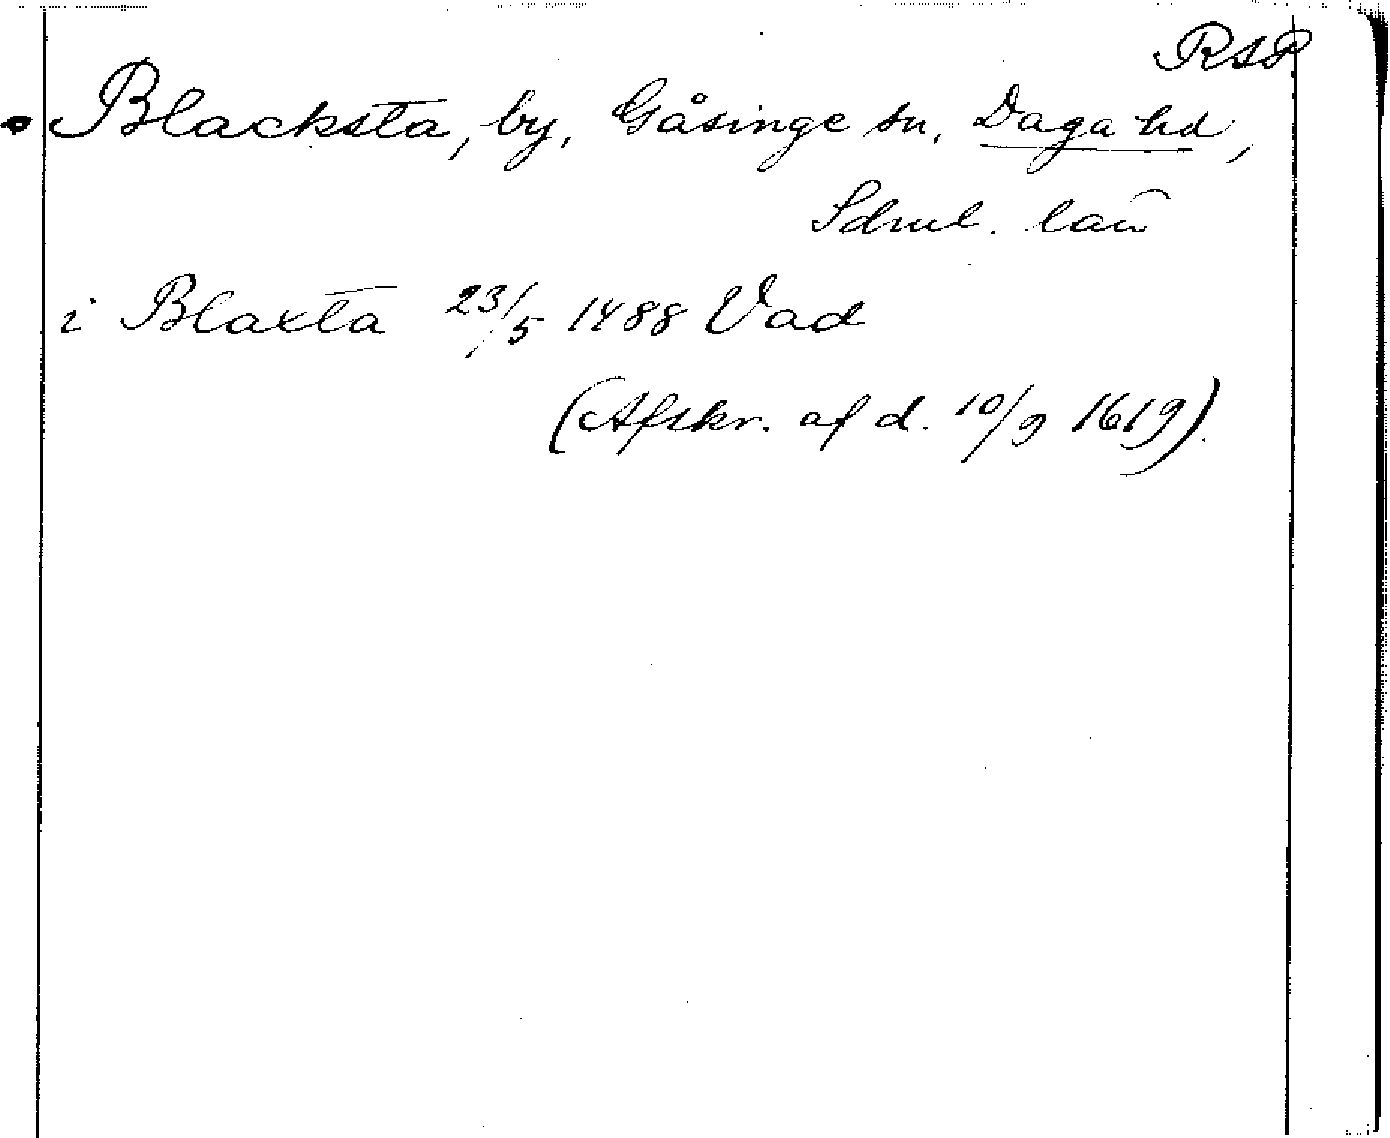 RAP
Blacksta, by, Gåsinge sn, Daga hd,
Sdml. län
i Blaxta 23/5 1488 Vad
(Afskr. af d. 10/9 1619).